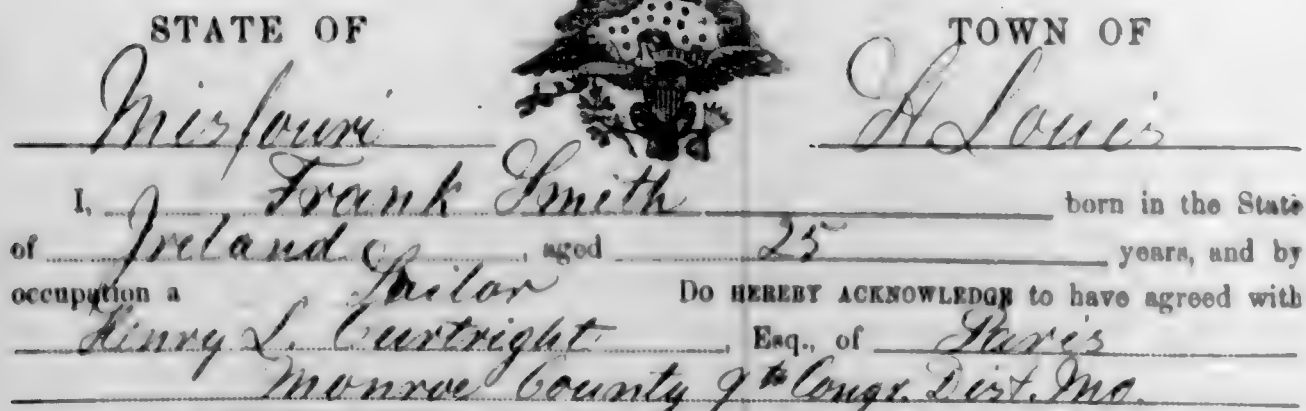 STATE OF TOWN OF
Missouri St Louis
I, Frank Smith born in the State
of Ireland, aged 25 years, and by
occupation a Sailor Do HEREBY ACKNOWLEDGE to have agreed with
Henry L. Curtright, Esq., of Paris
Monroe County 9th Congr. Dist. Mo.